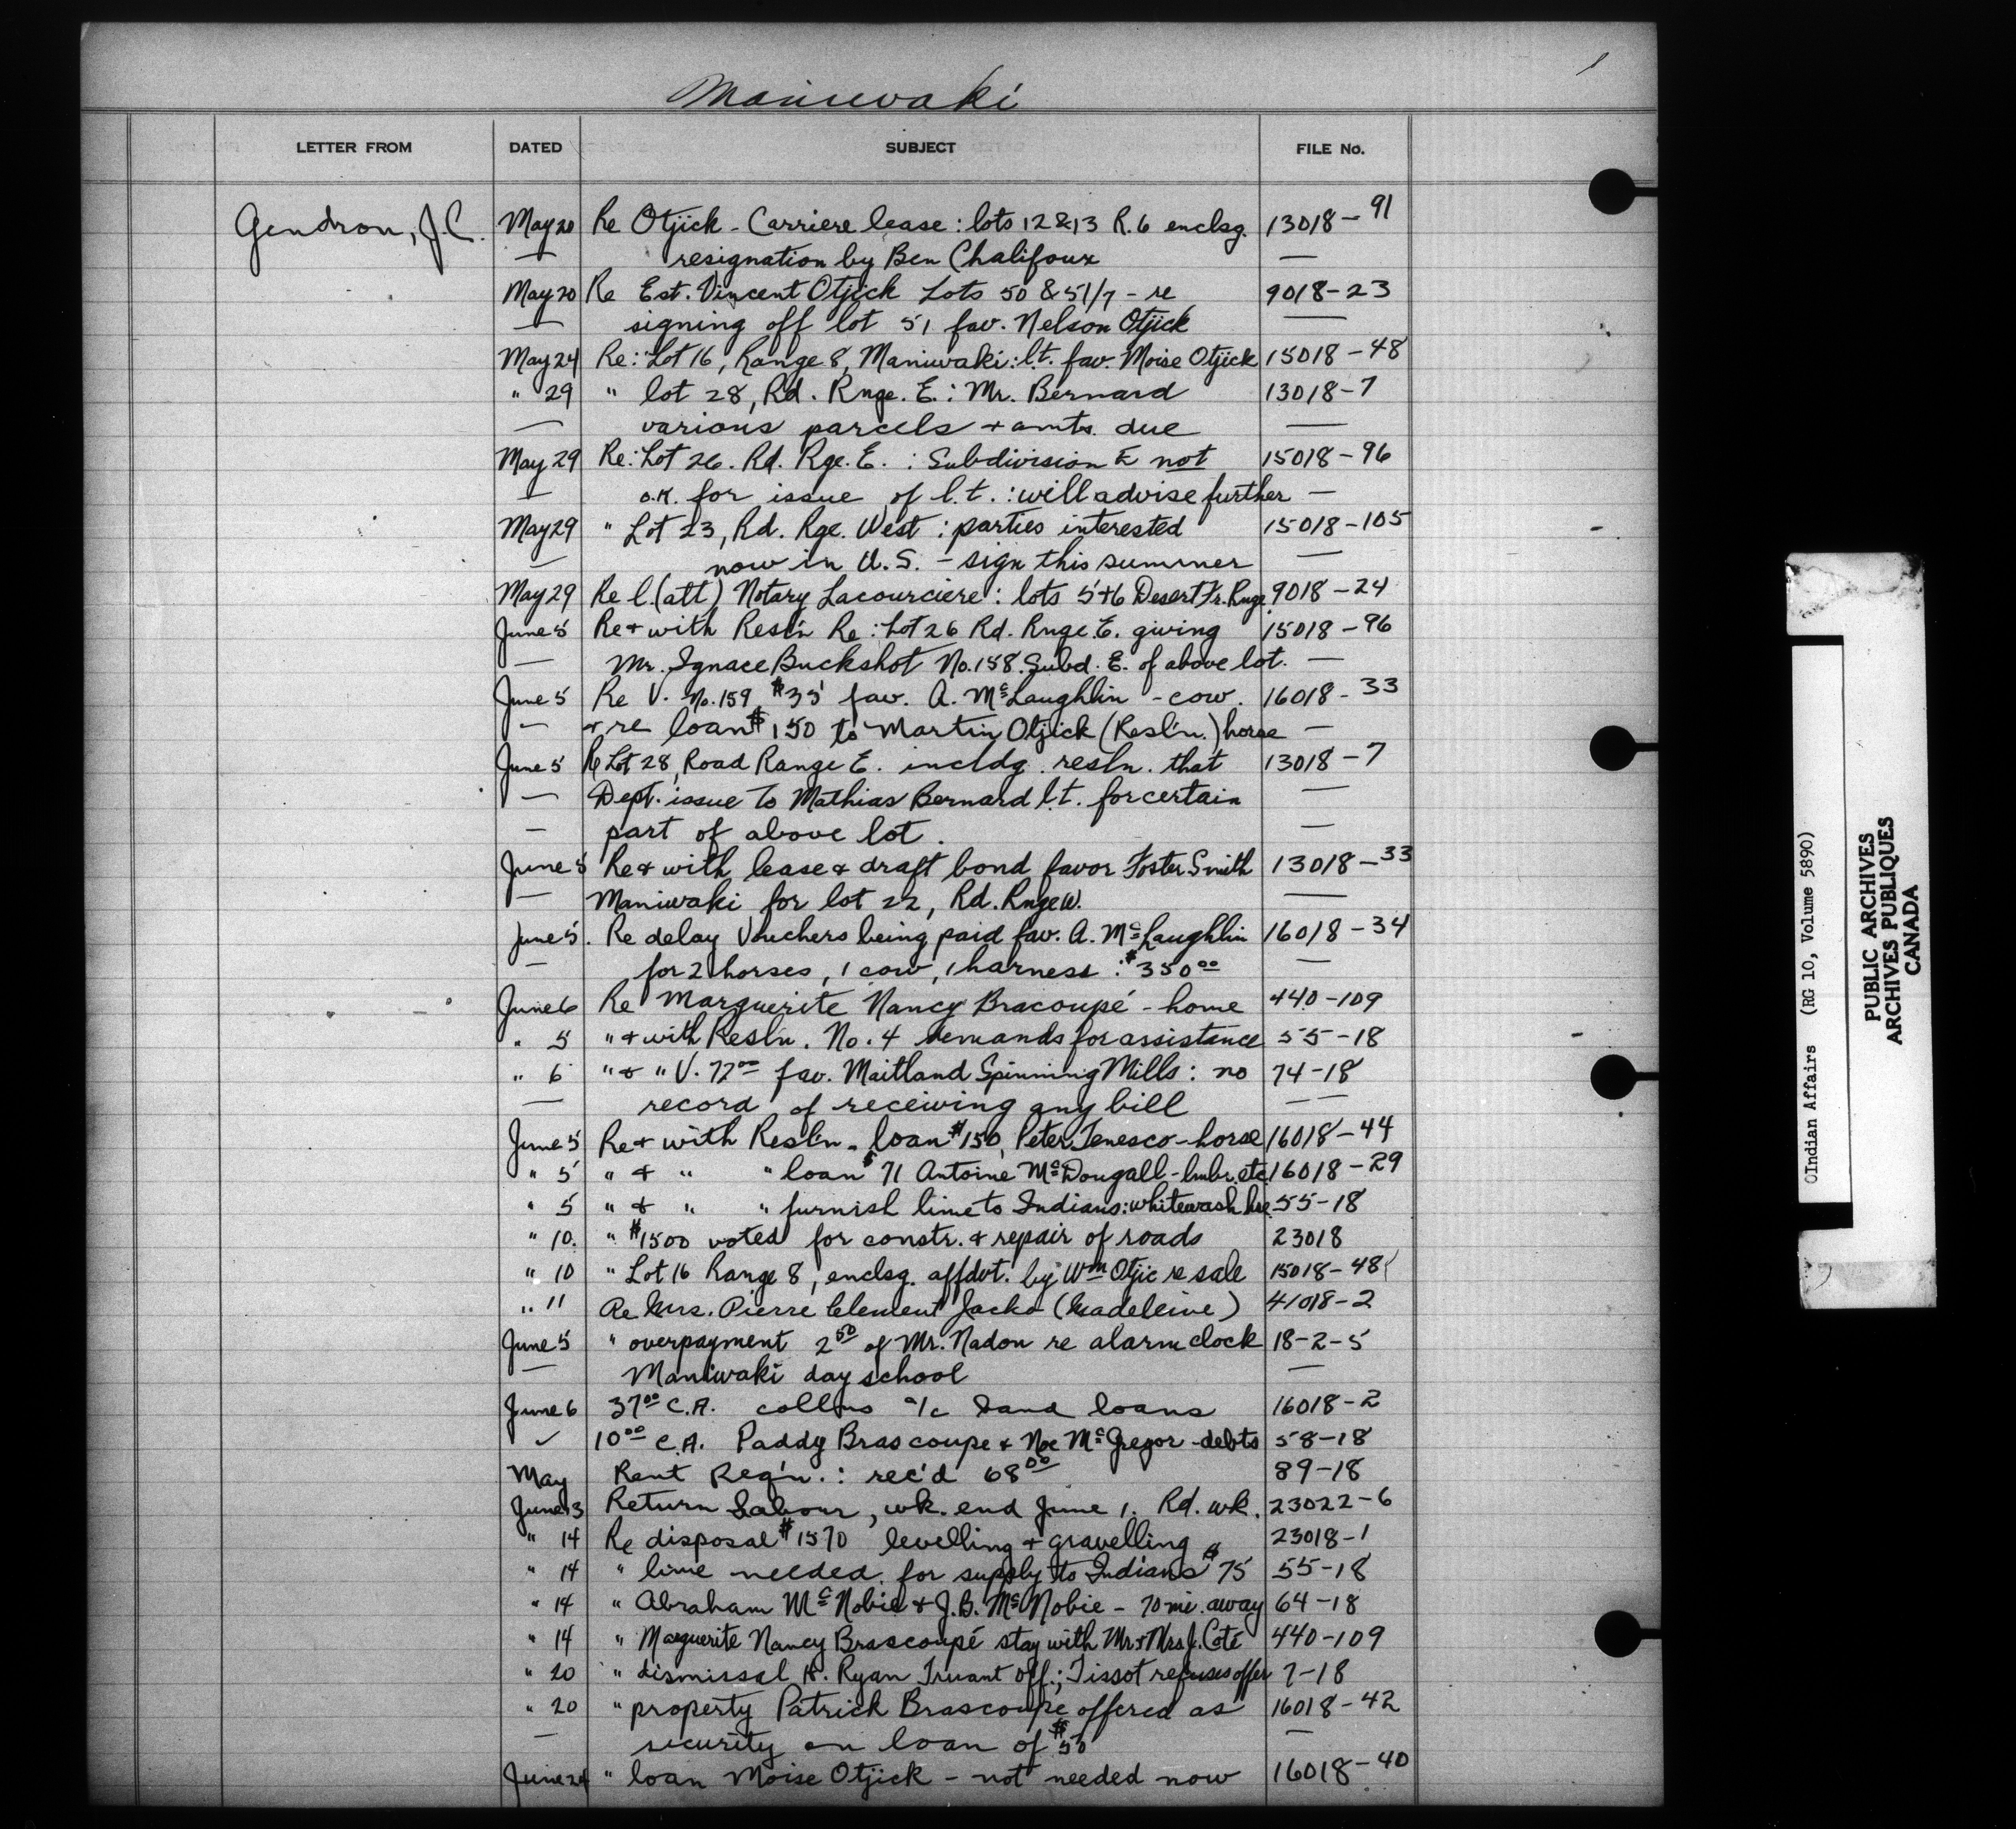 1
Maniwaki
LETTER FROM DATED SUBJECT FILE No.
Gendron, J.C. May 20 Re Otjick - Carriere lease: lots 12 & 13 R. 6 enclsg. 13018-91
— resignation by Ben Chalifoux —
May 20 Re Est. Vincent Otjick Lots 50 & 51/7 - re 9018-23
— signing off lot 51 fav. Nelson Otjick —
May 24 Re: Lot 16, Range 8, Maniwaki: l.t. fav. Moise Otjick 15018-48
" 29 " lot 28, Rd. Rnge. E.: Mr. Bernard 13018-7
— various parcels + amts. due —
May 29 Re: Lot 26. Rd. Rge. E. : Subdivision E not 15018-96
— o.K. for issue of l.t. : will advise further —
May 29 " Lot 23, Rd. Rge. West : parties interested 15018-105
— now in U.S. - sign this summer —
May 29 Re l. (att) Notary Lacourciere: lots 5+6 Desert Fr. Rnge 9018-24
June 5 Re + with Resl'n Re: Lot 26 Rd. Rnge. E. giving 15018-96
— Mr. Ignace Buckshot No. 158. Subd. E. of above lot. —
June 5 Re V. No. 159 $35 fav. A. McLaughlin - cow. 16018-33
— + re loan $150 to Martin Otjick (Resl'n.) horse —
June 5 Re Lot 28, Road Range E. incldg. resln. that 13018-7
— Dept. issue to Mathias Bernard l.t. for certain —
— part of above lot. —
June 5 Re + with lease + draft bond favor Foster Smith 13018-33
— Maniwaki for lot 22, Rd. Rnge W. —
June 5. Re delay Vouchers being paid fav. A. McLaughlin 16018-34
— for 2 horses, 1 cow, 1 harness: $350 00 —
June 6 Re Marguerite Nancy Bracoupé - home 440-109
" 5 " + with Resl'n. No. 4 demands for assistance 55-18
" 6 " + " V. 72 00 fav. Maitland Spinning Mills: no 74-18
— record of receiving any bill — —
June 5 Re + with Resl'n - loan $150, Peter Tenesco - horse 16018-44
" 5 " + " " loan $71 Antoine McDougall - lmbr. etc 16018-29
" 5 " + " " furnish lime to Indians: whitewash hse. 55-18
" 10. " $1500 voted for constr. + repair of roads 23018
" 10 " Lot 16 Range 8, enclsg. affdvt. by Wm Otjic re sale 15018-48
" 11 Re Mrs. Pierre Clement Jacko (Madeleine) 41018-2
June 5 " overpayment 2 50 of Mr. Nadon re alarm clock 18-2-5
— Maniwaki day school —
June 6 37 00 C.A. collns a/c Band loans 16018-2
✓ 10 00 C.A. Paddy Brascoupe + Noe McGregor - debts 58-18
May Rent Req'n. : rec'd 68 00 89-18
June 13 Return Labour, wk. end June 1. Rd. wk. 23022-6
" 14 Re disposal $1570 levelling + gravelling 23018-1
" 14 " lime needed for supply to Indians $75 55-18
" 14 " Abraham McNobie + J.B. McNobie - 70 mi. away 64-18
" 14 " Marguerite Nancy Brascoupé stay with Mr. + Mrs. J. Coté 440-109
" 20 " dismissal H. Ryan Truant Off.; Tissot refuses offer 7-18
" 20 " property Patrick Brascoupe offered as 16018-42
— security on loan of $50 —
June 24 " loan Moise Otjick - not needed now 16018-40
OIndian Affairs (RG 10, Volume 5890)
PUBLIC ARCHIVES
ARCHIVES PUBLIQUES
CANADA